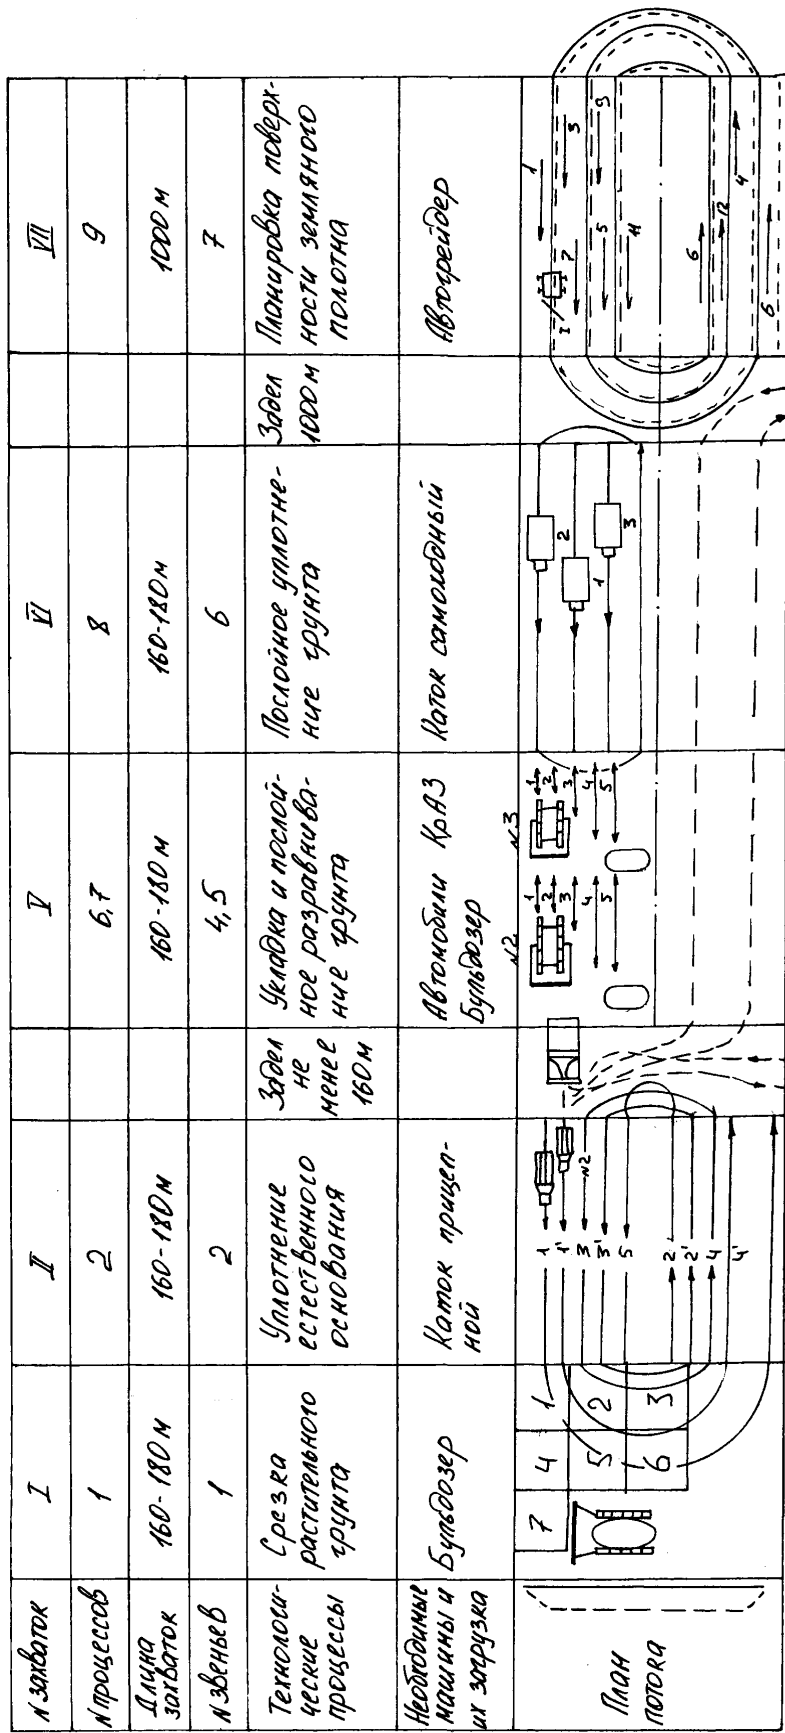 N захваток
I
II
V
VI
VII
N процессов
1
2
6,7
8
9
Длина
захваток
160-180 м
160-180 м
160-180 м
160-180 м
1000 м
N звеньев
1
2
4,5
6
7
Технологи-
ческие
процессы
Срезка
растительного
грунта
Уплотнение
естественного
основания
Задел
не
менее
160 м
Укладка и послой-
ное разравнива-
ние грунта
Послойное уплотне-
ние грунта
Задел
1000 м
Планировка поверх-
ности земляного
полотна
Необходимые
машины и
их загрузка
Бульдозер
Каток прицеп-
ной
Автомобили КрАЗ
Бульдозер
Каток самоходный
Автогрейдер
План
потока
7
4
1
5
2
6
3
1
1'
3
3'
5
2
2'
4
4'
N2
N2
1
2
3
4
5
N3
1
2
3
4
5
2
1
3
1
I
7
3
5
9
11
6
12
4
6